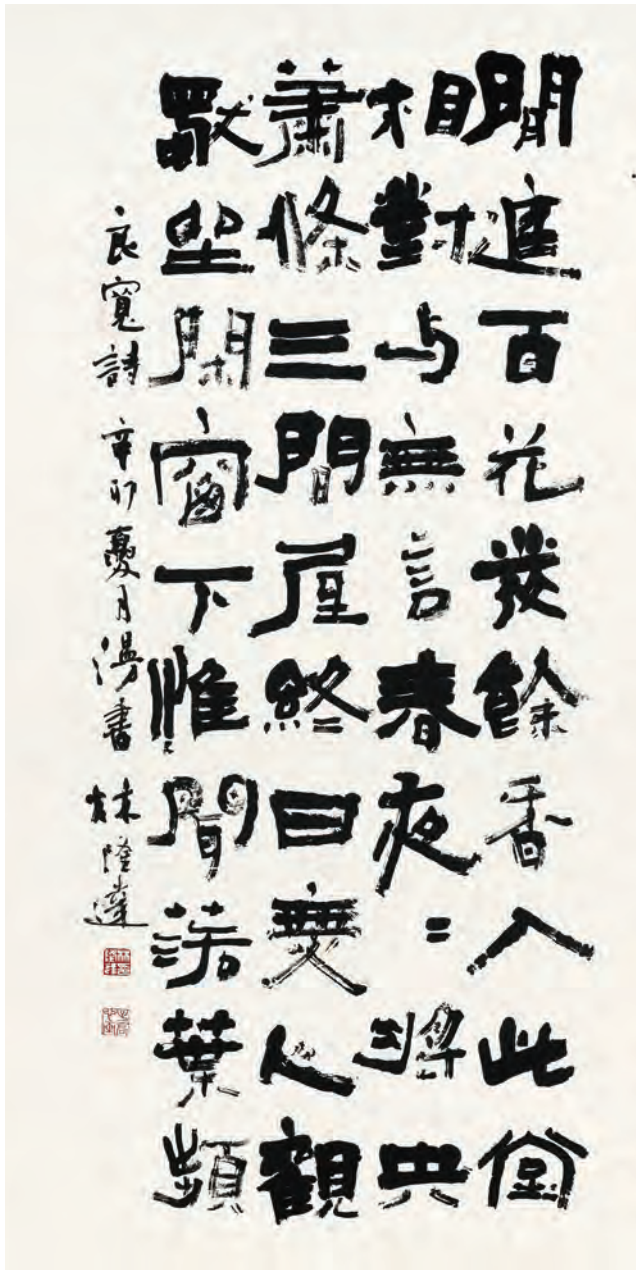 閒庭百花發餘香入此堂
相對与無言春夜〻將央
蕭條三間屋終日無人觀
獨坐閑窗下惟聞落葉頻
良寬詩 辛卯夏月漫書 林隆達